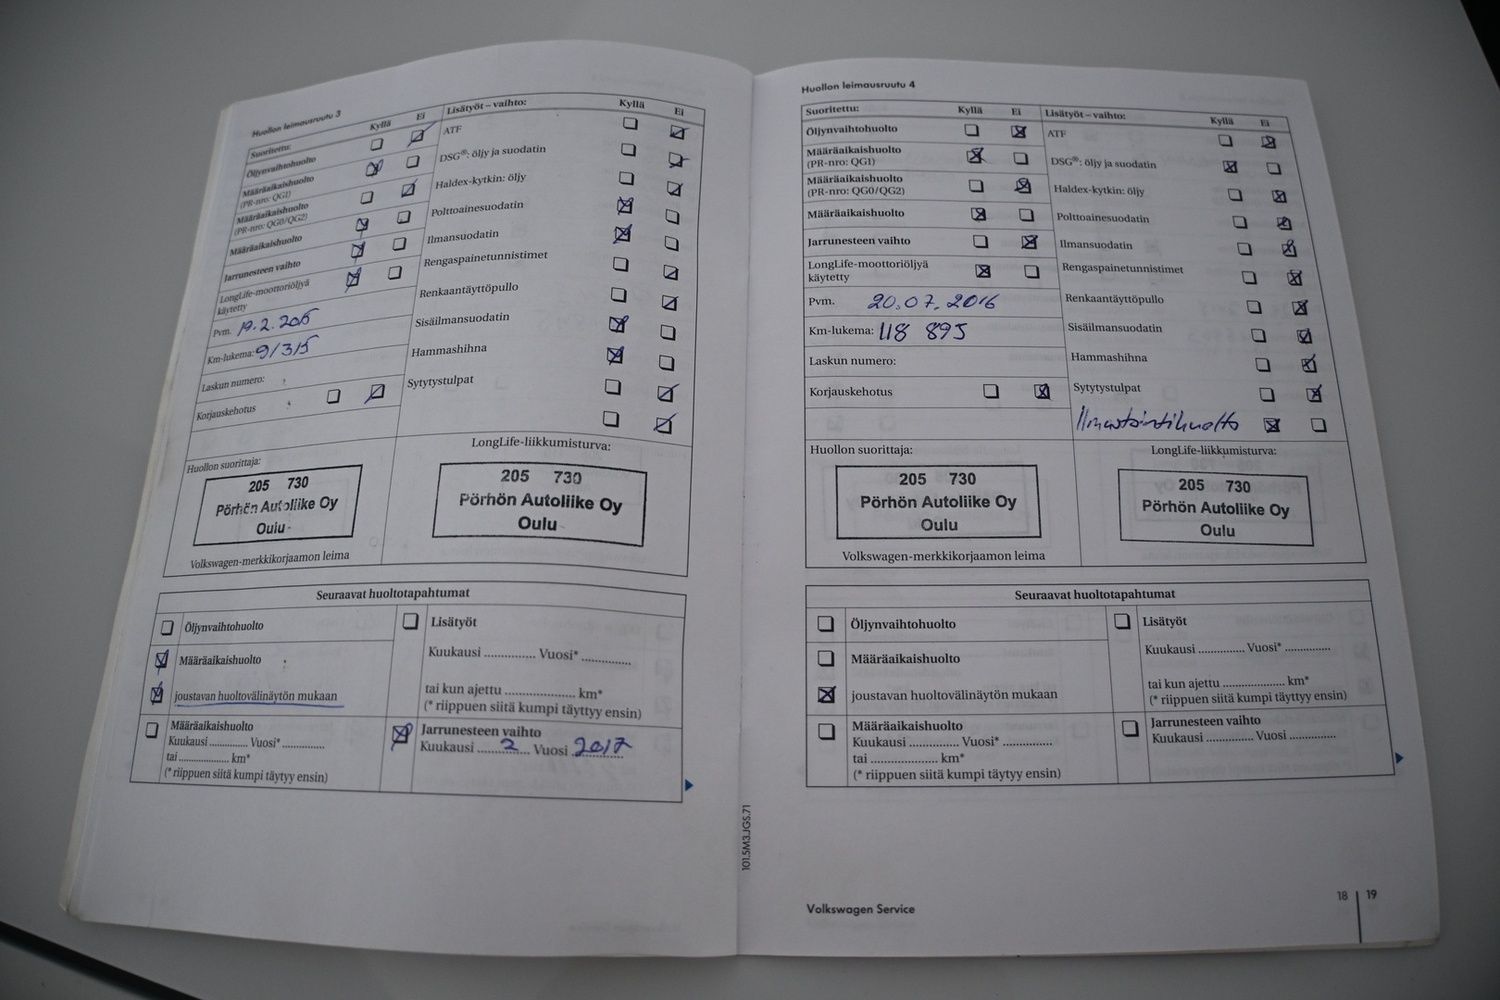 Huollon leimausruutu 3
Suoritettu: Kyllä Ei
Öljynvaihtohuolto
Määräaikaishuolto
(PR-nro: QG1)
Määräaikaishuolto
(PR-nro: QG0/QG2)
Määräaikaishuolto
Jarrunesteen vaihto
LongLife-moottoriöljyä
käytetty
Pvm. 19.2.2015
Km-lukema: 91315
Laskun numero:
Korjauskehotus
Lisätyöt – vaihto: Kyllä Ei
ATF
DSG®: öljy ja suodatin
Haldex-kytkin: öljy
Polttoainesuodatin
Ilmansuodatin
Rengaspainetunnistimet
Renkaantäyttöpullo
Sisäilmansuodatin
Hammashihna
Sytytystulpat
Huollon suorittaja:
205 730
Pörhön Autoliike Oy
Oulu
Volkswagen-merkkikorjaamon leima
LongLife-liikkumisturva:
205 730
Pörhön Autoliike Oy
Oulu
Seuraavat huoltotapahtumat
Öljynvaihtohuolto
Määräaikaishuolto
joustavan huoltovälinäytön mukaan
Määräaikaishuolto
Kuukausi ............. Vuosi* ..............
tai .................... km*
(* riippuen siitä kumpi täytyy ensin)
Lisätyöt
Kuukausi .............. Vuosi* ..............
tai kun ajettu .................... km*
(* riippuen siitä kumpi täyttyy ensin)
Jarrunesteen vaihto
Kuukausi 2 Vuosi 2017
Huollon leimausruutu 4
Suoritettu: Kyllä Ei
Öljynvaihtohuolto
Määräaikaishuolto
(PR-nro: QG1)
Määräaikaishuolto
(PR-nro: QG0/QG2)
Määräaikaishuolto
Jarrunesteen vaihto
LongLife-moottoriöljyä
käytetty
Pvm. 20.07.2016
Km-lukema: 118 895
Laskun numero:
Korjauskehotus
Lisätyöt – vaihto: Kyllä Ei
ATF
DSG®: öljy ja suodatin
Haldex-kytkin: öljy
Polttoainesuodatin
Ilmansuodatin
Rengaspainetunnistimet
Renkaantäyttöpullo
Sisäilmansuodatin
Hammashihna
Sytytystulpat
Ilmastointihuolto
Huollon suorittaja:
205 730
Pörhön Autoliike Oy
Oulu
Volkswagen-merkkikorjaamon leima
LongLife-liikkumisturva:
205 730
Pörhön Autoliike Oy
Oulu
Seuraavat huoltotapahtumat
Öljynvaihtohuolto
Määräaikaishuolto
joustavan huoltovälinäytön mukaan
Määräaikaishuolto
Kuukausi .............. Vuosi* ..............
tai .................... km*
(* riippuen siitä kumpi täytyy ensin)
Lisätyöt
Kuukausi .............. Vuosi* ..............
tai kun ajettu .................... km*
(* riippuen siitä kumpi täyttyy ensin)
Jarrunesteen vaihto
Kuukausi .............. Vuosi ..............
101.5M3.JGS.71
Volkswagen Service
18 19